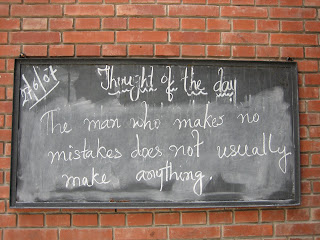 Thought of the day
The man who makes no
mistakes does not usually
make anything.